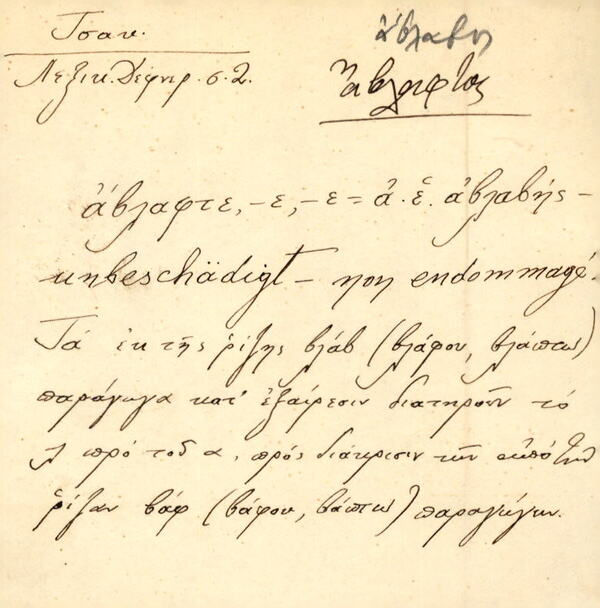 Τσακ.
Λεξικ. Δεφνερ. σ. 2.
ἀβλαβής
ἄβλαφτος
ἄβλαφτε, -ε, -ε = ἀ. ἑ. ἀβλαβής -
unbeschädigt - non endommagé.
Τά ἐκ τῆς ρίζης βλάβ (βλάφου, βλάπτω)
παράγωγα κατ' ἐξαίρεσιν διατηροῦν τό
λ πρό τοῦ α, πρός διάκρισιν τῶν ἀπό τήν
ρίζαν βάφ (βάφου, βάπτω) παραγώγων.